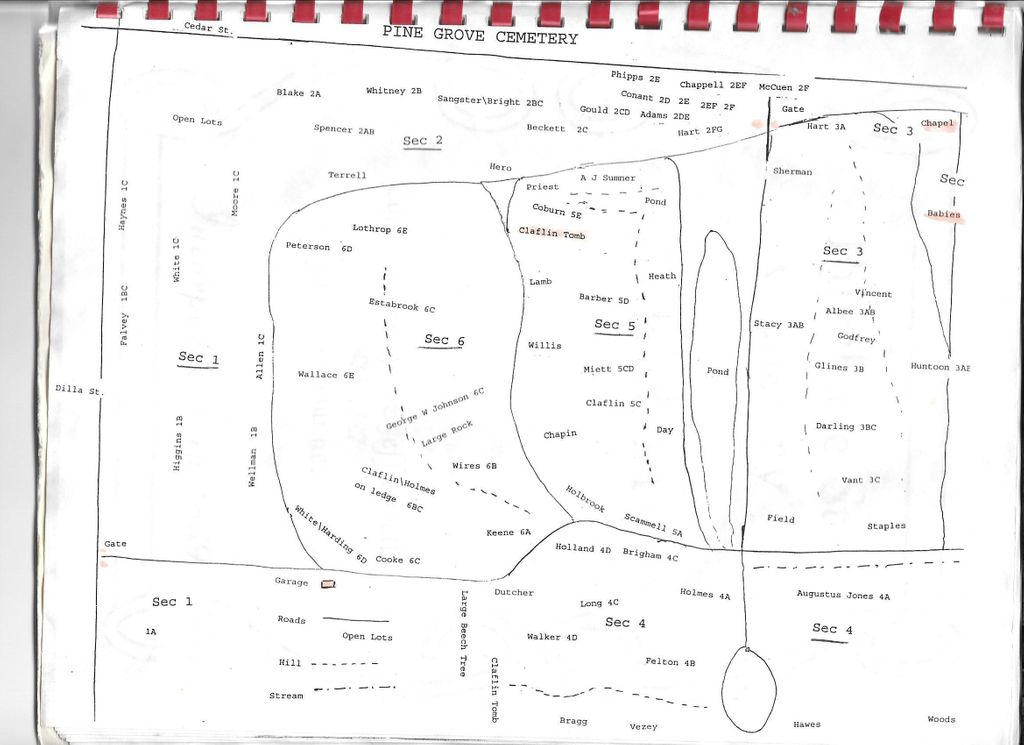 PINE GROVE CEMETERY
Cedar St.
Phipps 2E
Chappell 2EF
McCuen 2F
Blake 2A
Whitney 2B
Sangster\Bright 2BC
Conant 2D 2E 2EF 2F
Gould 2CD Adams 2DE
Gate
Open Lots
Spencer 2AB
Sec 2
Beckett 2C
Hart 2FG
Hart 3A
Sec 3
Chapel
Terrell
Hero
A J Sumner
Sherman
Sec
Priest
Pond
Haynes 1C
Moore 1C
Coburn 5E
Babies
Lothrop 6E
Claflin Tomb
Peterson 6D
White 1C
Sec 3
Falvey 1BC
Estabrook 6C
Lamb
Heath
Barber 5D
Vincent
Albee 3AB
Sec 5
Stacy 3AB
Godfrey
Allen 1C
Sec 6
Willis
Sec 1
Wallace 6E
Miett 5CD
Pond
Glines 3B
Huntoon 3AB
Dilla St.
George W Johnson 6C
Large Rock
Claflin 5C
Higgins 1B
Wellman 1B
Chapin
Day
Darling 3BC
Wires 6B
Claflin\Holmes
on ledge 6BC
Vant 3C
Holbrook
White\Harding 6D
Keene 6A
Scammell 5A
Field
Staples
Gate
Cooke 6C
Holland 4D
Brigham 4C
Garage
Dutcher
Holmes 4A
Augustus Jones 4A
Sec 1
Long 4C
Roads
Large Beech Tree
Sec 4
Sec 4
1A
Open Lots
Walker 4D
Hill
Felton 4B
Stream
Claflin Tomb
Bragg
Vezey
Hawes
Woods